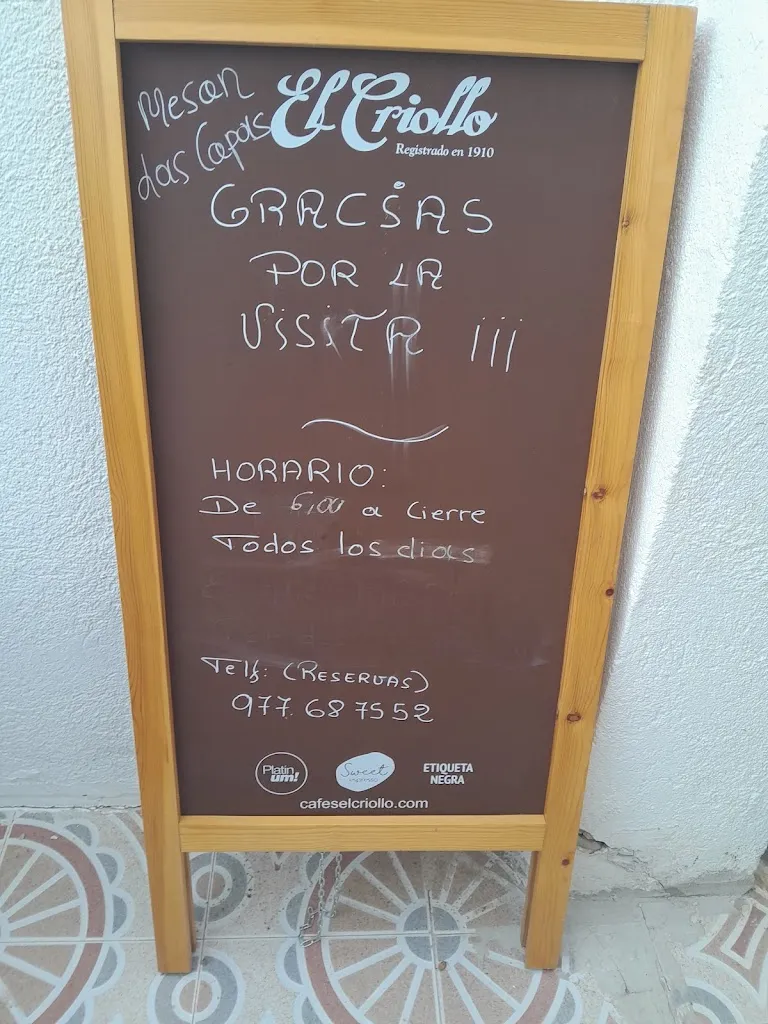 Meson
Las Capas
El Criollo
Registrado en 1910
GRACiAS
POR LA
ViSiTA ¡¡¡
HORARIO:
De 6,00 a Cierre
Todos los dias
Telf: (RESERVAS)
977 68 75 52
Platin
um!
Sweet
espresso
ETIQUETA
NEGRA
cafeselcriollo.com